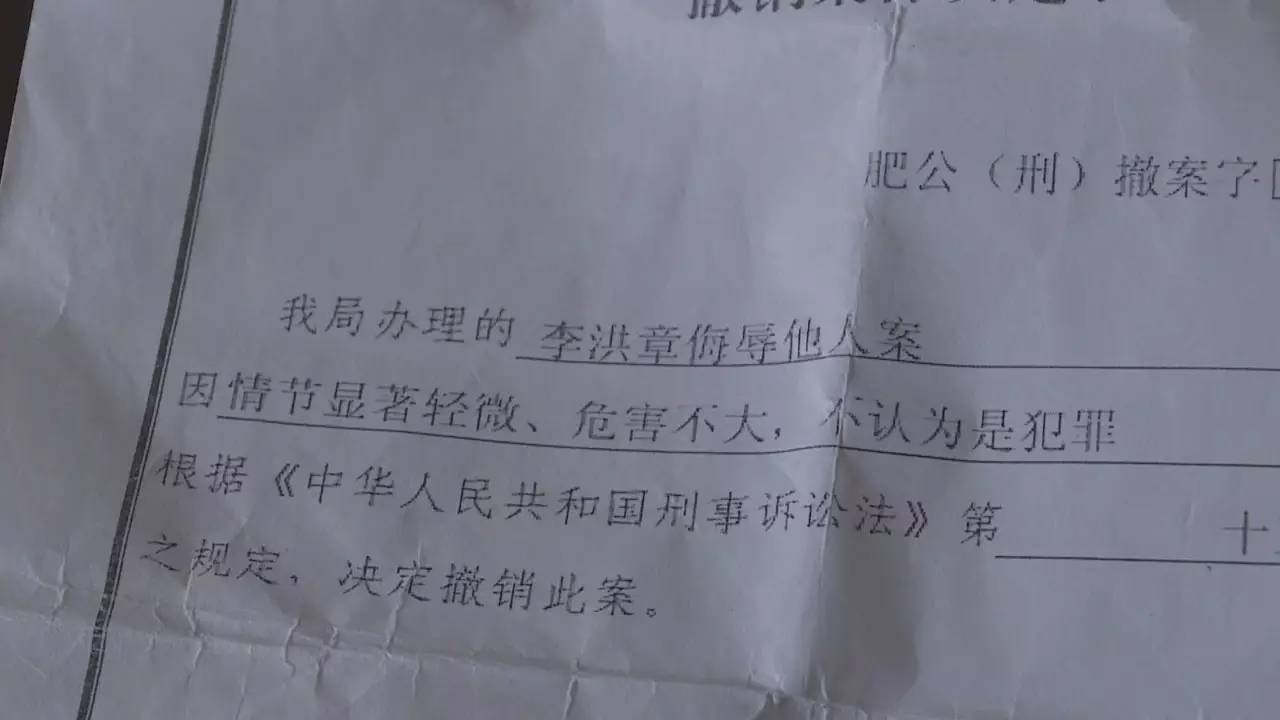 撤销案件决定
肥公（刑）撤案字
我局办理的 李洪章侮辱他人案
因情节显著轻微、危害不大，不认为是犯罪
根据《中华人民共和国刑事诉讼法》第 十
之规定，决定撤销此案。